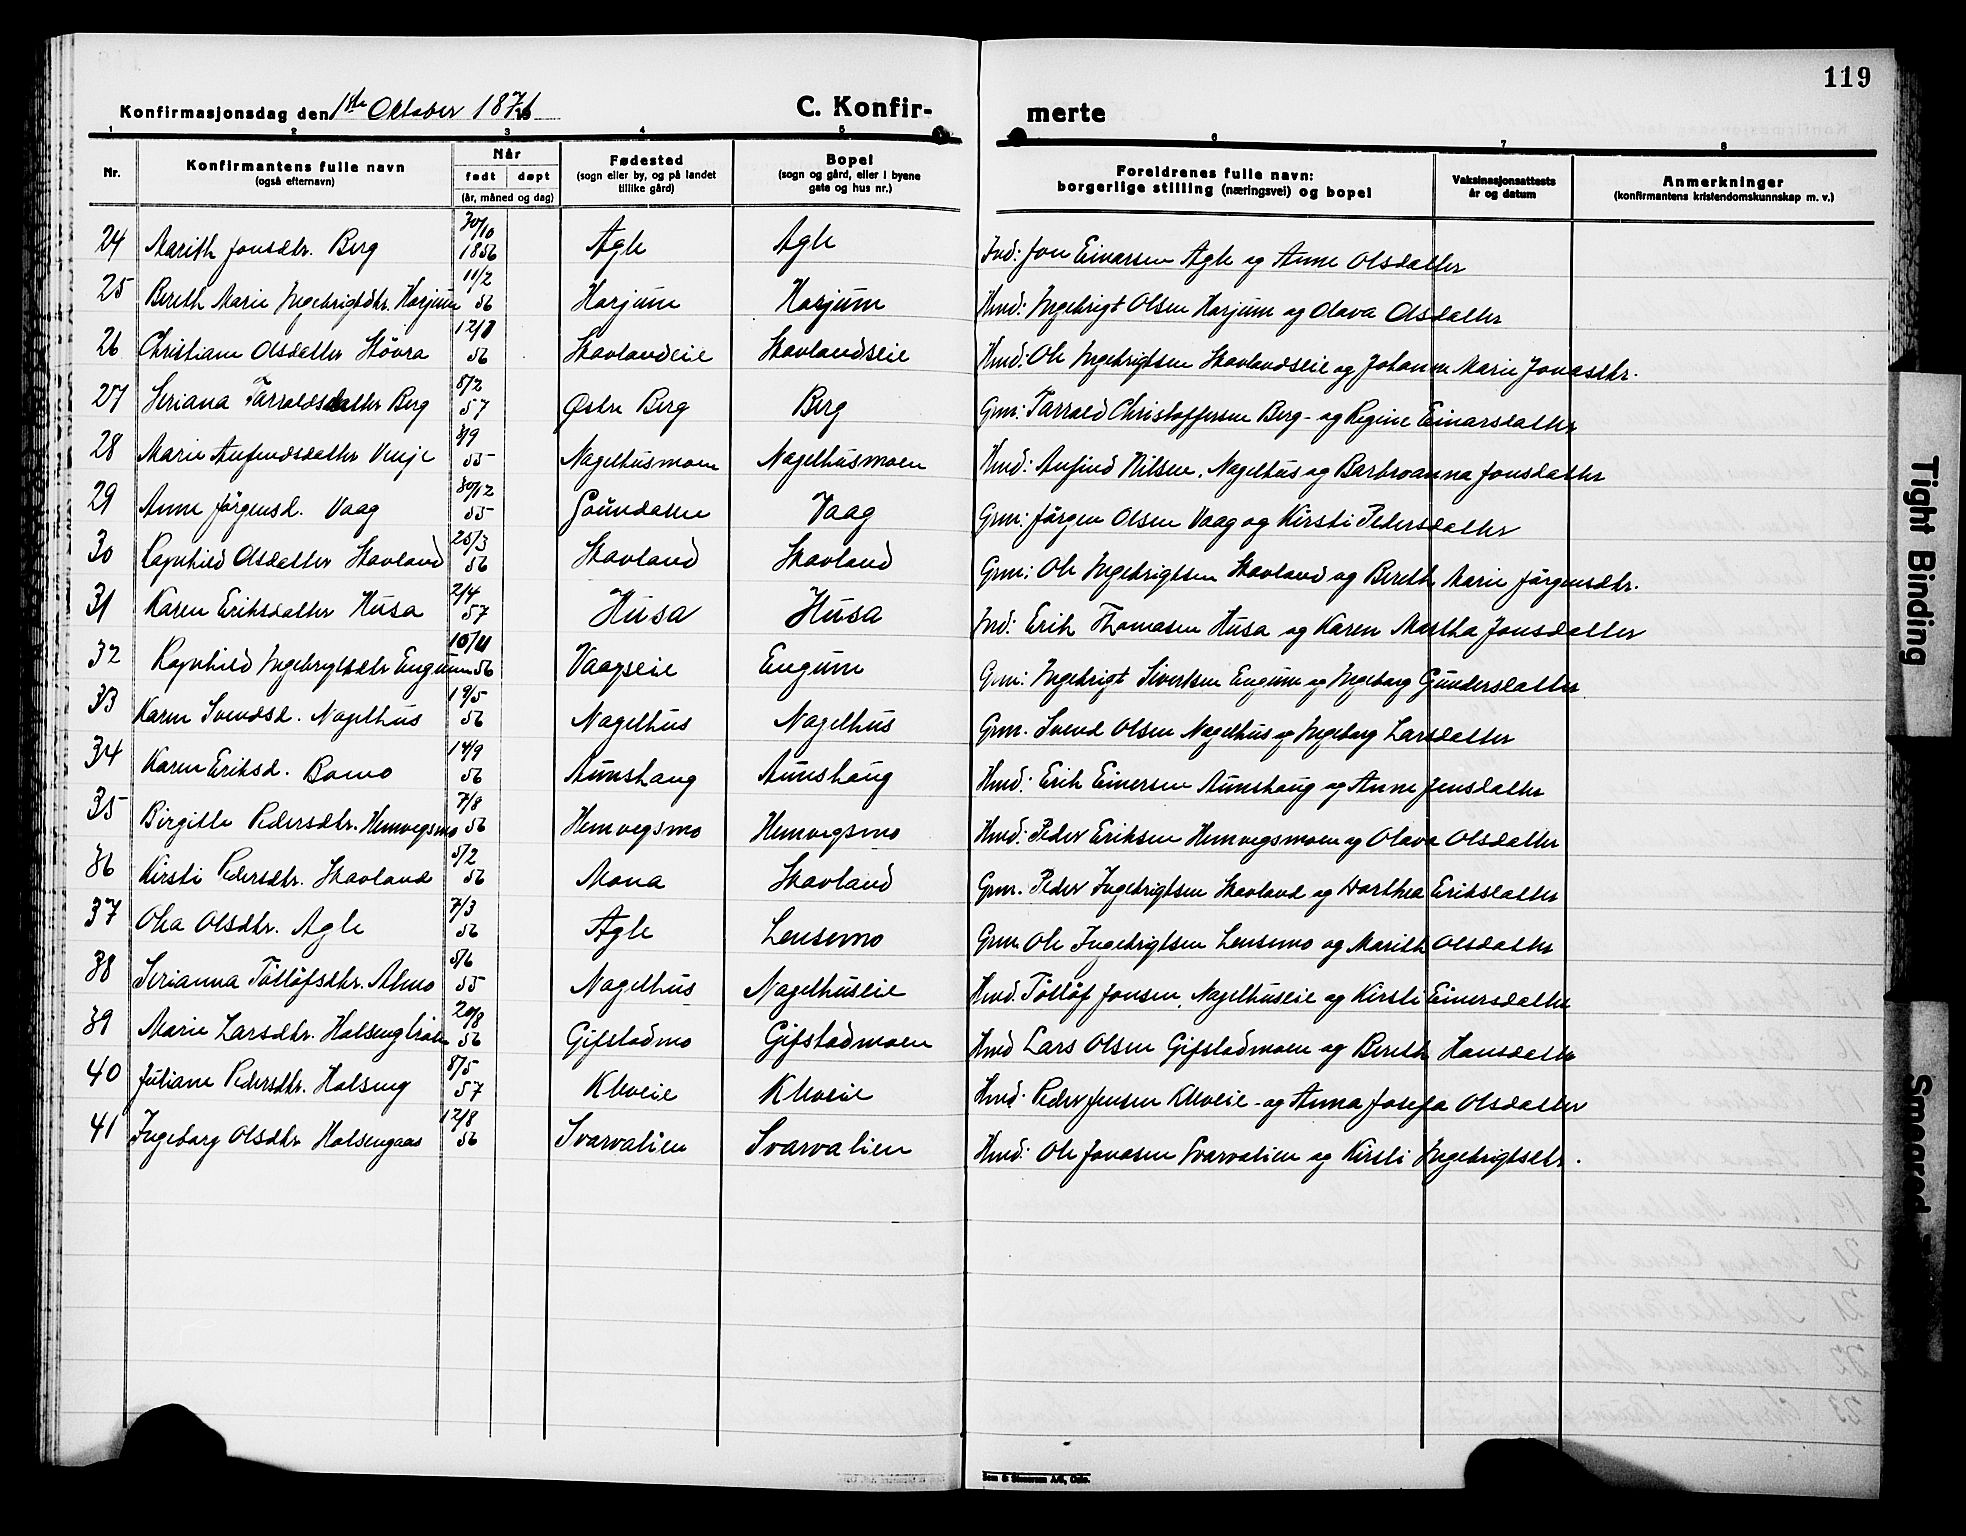 119
Konfirmasjonsdag den 1ste Oktober 1871 C. Konfir- merte
1 2 3 4 5 6 7 8
Nr. Konfirmantens fulle navn (også efternavn) Når født døpt (år, måned og dag) Fødested (sogn eller by, og på landet tillike gård) Bopel (sogn og gård, eller i byene gate og hus nr.) Foreldrenes fulle navn: borgerlige stilling (næringsvei) og bopel Vaksinasjonsattests år og datum Anmerkninger (konfirmantens kristendomskunnskap m. v.)
24 Marith Jonsdtr. Berg 30/10 1856 Agle Agle Ind: Jon Einarsen Agle og Anne Olsdatter
25 Bereth Marie Ingebrigtsdtr. Harjum 11/2 56 Harjum Harjum Hmd: Ingebrigt Olsen Harjum og Olava Olsdatter
26 Christiane Olsdatter Støvra 56 Skavlandeie Skavlandseie Hmd: Ole Ingebrigtsen Skavlandseie og Johanne Marie Jonasdtr.
27 Seriana Tarraldsdatter Berg 8/2 57 Østre Berg Berg Grm: Tarrald Christoffersen Berg - og Regine Einarsdatter
28 Marie Anfindsdatter Vinje 55 Nagelhusmoen Nagelhusmoen Hmd: Anfind Nilsen, Nagelhus og Barbroanna Jonsdatter
29 Anne Jørgensd. Vaag 30/12 55 Vaag Grm: Jørgen Olsen Vaag og Kirsti Pedersdatter
30 Ragnhild Olsdatter Skavland 25/3 56 Skavland Skavland Grm: Ole Ingebrigtsen Skavland og Bereth Marie Jørgensdtr.
31 Karen Eriksdatter Husa 2/4 57 Husa Husa Ind: Erik Thomasen Husa og Karen Martha Jonsdatter
32 Ragnhild Ingebrigtsdtr Engum 10/11 56 Vaagseie Engum Grm: Ingebrigt Sivertsen Engum og Ingeborg Gundersdatter
33 Karen Svendsd. Nagelhus 19/5 56 Nagelhus Nagelhus Grm. Svend Olsen Nagelhus og Ingeborg Larsdatter
34 Karen Eriksd. Bomo 14/9 56 Aunshaug Aunshaug Hmd: Erik Einersen Aunshaug og Anne Jensdatter
35 Birgitte Pedersdtr. Hemvegsmo 7/8 56 Hemvegsmo Hemvegsmo Hmd: Peder Eriksen Hemvegsmoen og Olava Olsdatter
36 Kirsti Pedersdtr. Skavland 5/2 56 Mona Skavland Grm. Peder Ingebrigtsen Skavland og Dorthea Eriksdatter
37 Olea Olsdtr. Agle 7/3 56 Agle Lensmo Grm Ole Ingebrigtsen Lensemo og Marith Olsdatter
38 Serianna Tølløfsdtr. Almo 5/6 55 Nagelhus Nagelhuseie Hmd. Tølløf Jonsen, Nagelhuseie og Kirsti Einersdatter
39 Marie Larsdtr. 20/8 56 Gifstadmo Gifstadmoen Hmd Lars Olsen Gifstadmoen og Bereth Hansdatter
40 Juliane Pedersdtr. Halseng 8/5 57 Kleveie Kleveie Hmd: Peder Jensen Kleveie - og Anna Josefa Olsdatter
41 Ingeborg Olsdtr Halsengaas 12/8 56 Svarvalien Svarvalien Hmd: Ole Jonasen Svarvalien og Kirsti Ingebrigtsdtr.
Sem & Stenersen A/S, Oslo.
Tight Binding
Smeared